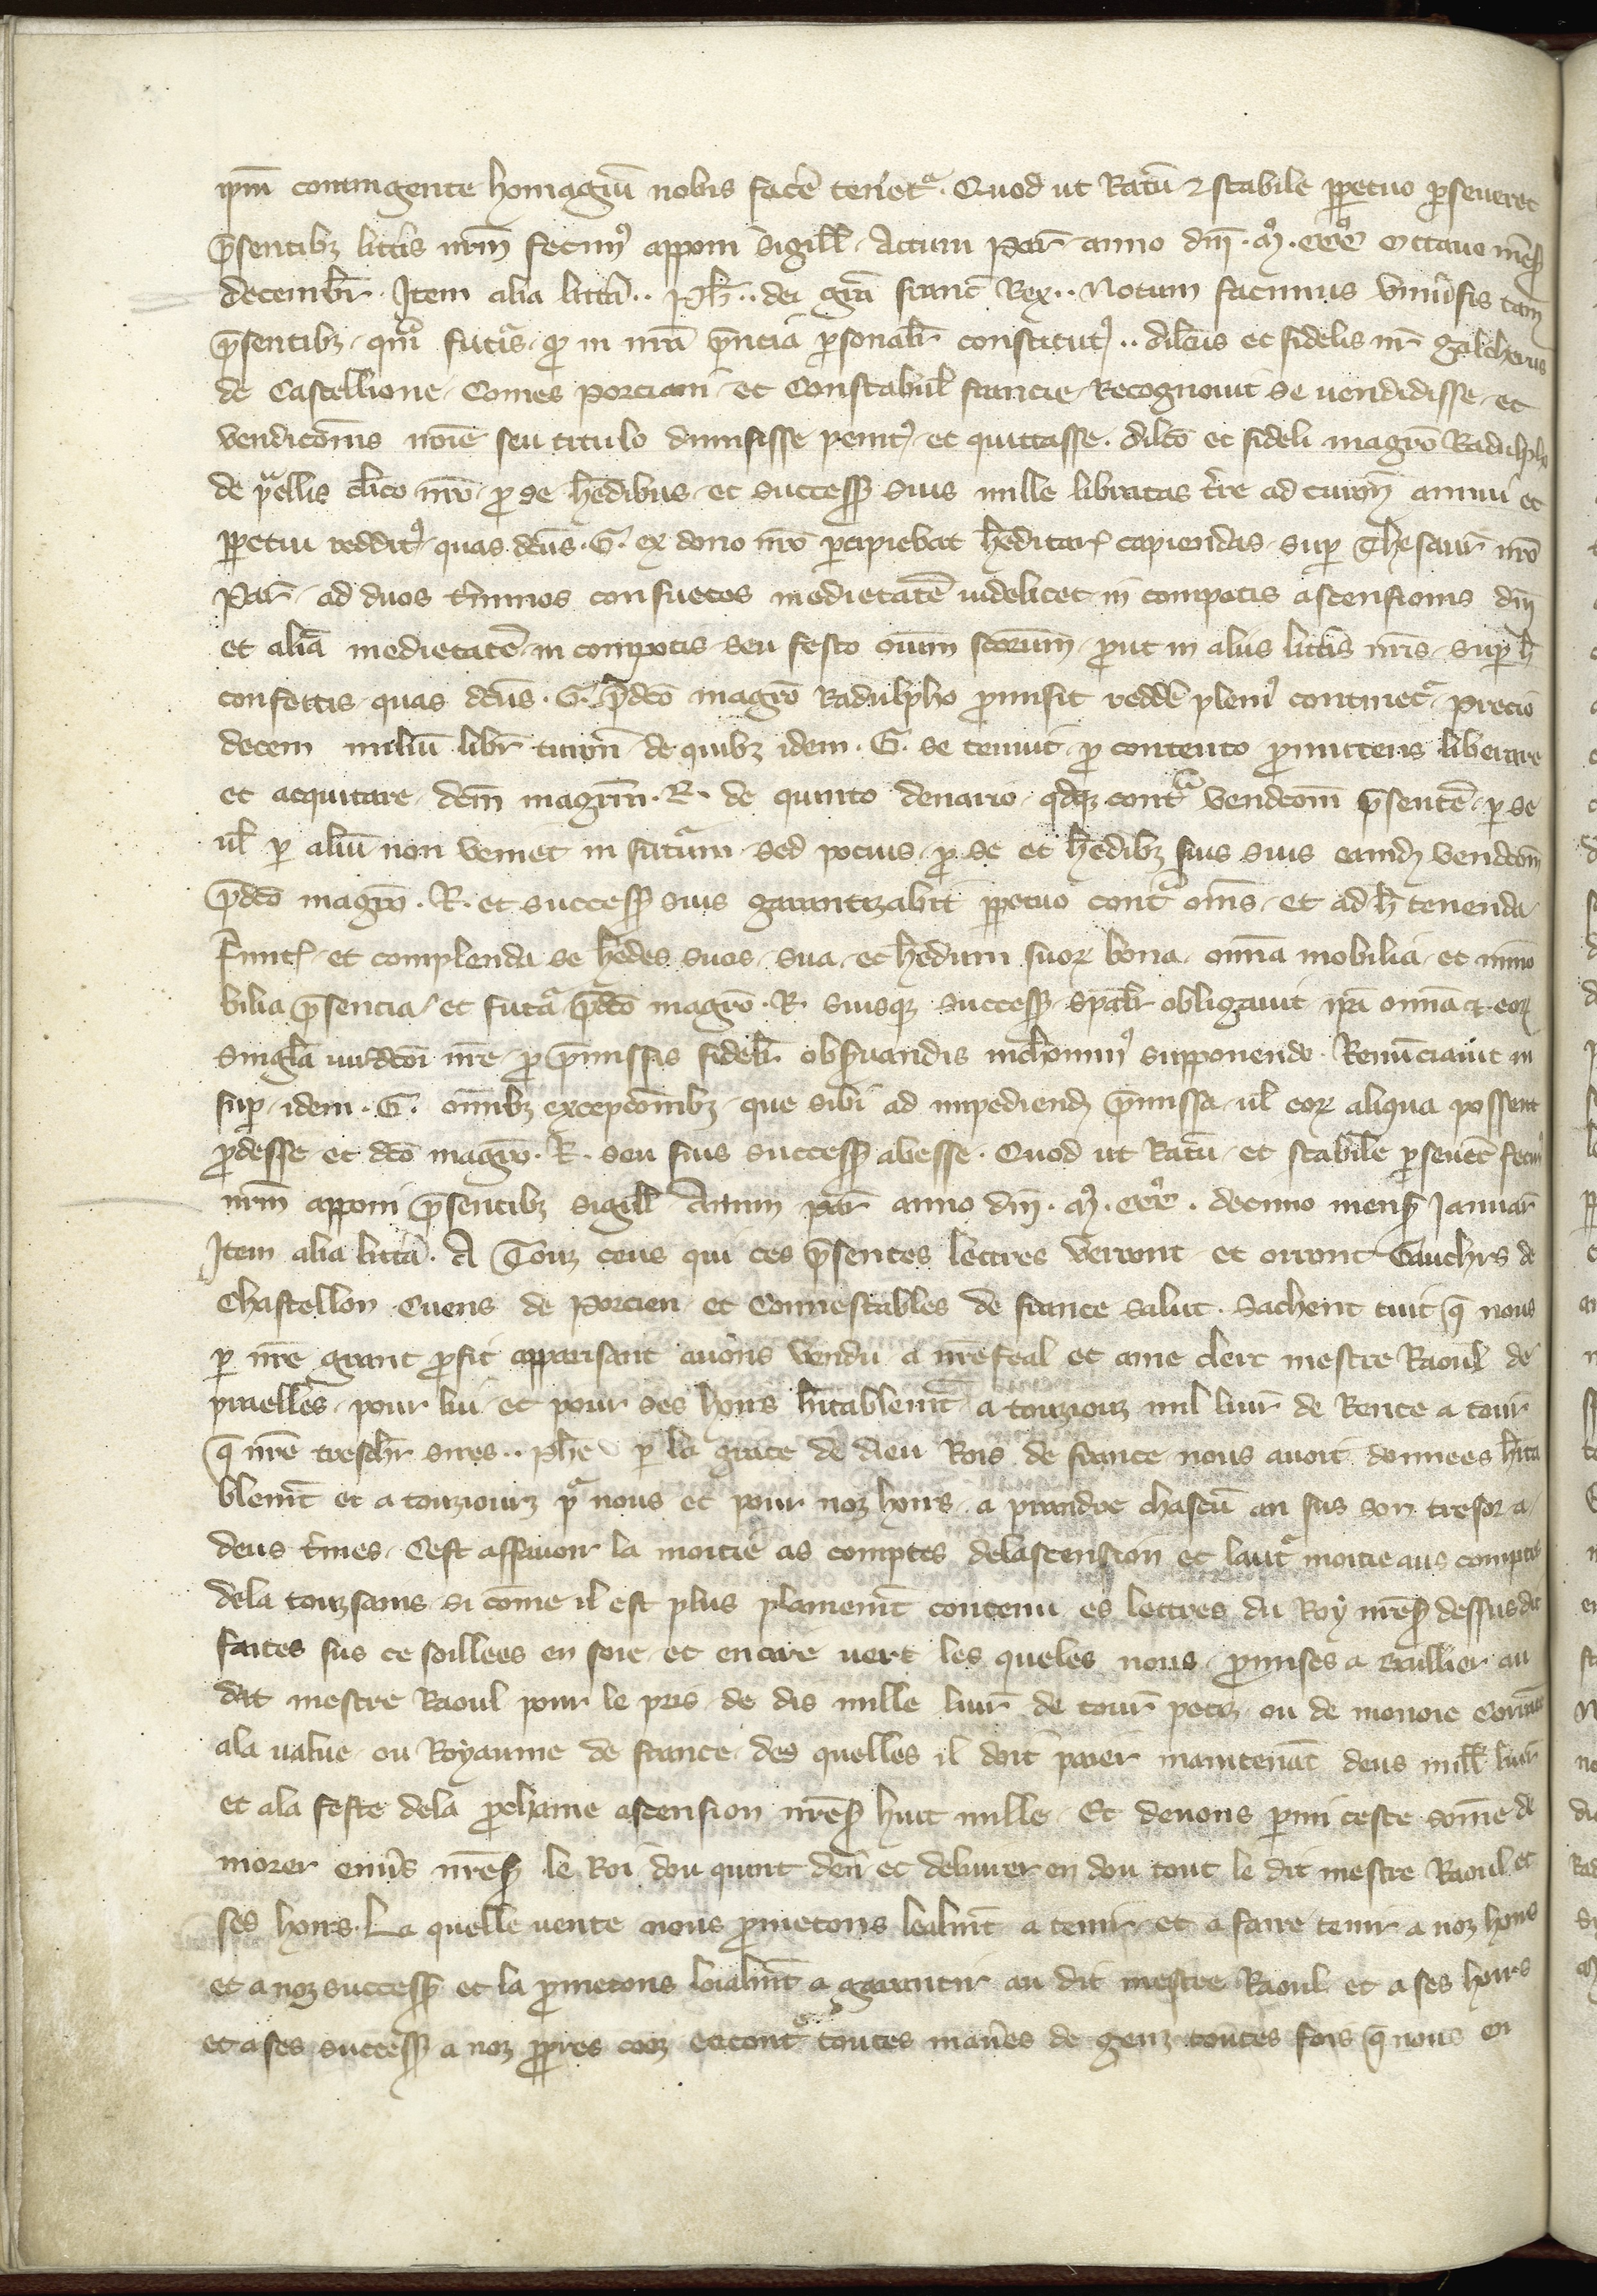 ip̄m contingente homagiū nobis facē tenetᵃ. Quod ut Ratū & stabile ꝑpetuo ꝑseueret
p̄sentibꝫ litt̄is nr̄m fecimꝰ apponi Sigill̄. Actum par̄ anno dn̄i. mº. cccº octauo mēs̄
decembr̄. Item alia litt̄a.. Ph̄.. dei gr̄a franc̄ Rex.. Notum facimus vniūsis tam
p̄sentibꝫ qm̄ futᵃis ꝙ in nr̄a p̄ncia ꝑsonal̄r constitutꝰ.. dil̄cus et fidelis nr̄ galcherus
de Castellione Comes porciani et Constabul̄ francie Recognouit se vendidisse et
vendicōnis nōie seu titulo dimisisse penitꝰ et quittasse. dil̄co et fideli magr̄o Radulpho
de pᵃellis cl̄ico nr̄o ꝓ se hēdibus et success̄ suis mille libratas t̄re ad turon̄ annui et
ꝑpetui redditꝰ quas dc̄us. G. ex dono nr̄o ꝑcipiebat hēditar̄ capiendas sup Thesaur̄ nr̄o
par̄ ad duos t̄minos consuetos medietatē videlicet in compotis ascensionis dn̄i
et aliā medietatē in compotis seu festo oīum sc̄orum prout in aliis litt̄is nr̄is sup h̄
confectis quas dc̄us. G. p̄dc̄o magr̄o Radulpho ꝓmisit reddē pleniꝰ continetᵃ precio
decem miliū libr̄ turon̄ de quibꝫ idem. G. se tenuit ꝓ contento ꝓmittens liberare
et acquitare dc̄m magr̄m. R. de quinto denario qdꝫ contᵃ vendcōm p̄sentē ꝑ se
ul̄ ꝑ aliū non veniet in futᵃum sed pocius ꝓ se et hēdibꝫ suis suis eamdꝫ vendcōm
p̄dc̄o magr̄o. R. et success̄ suis garantizabit ꝑpetuo contᵃ om̄s et ad h̄ tenenda
et complenda se hēdes suos sua et hēdum suoꝝ bona om̄ia mobilia et immo
bilia p̄sencia et futᵃa p̄dc̄o magr̄o. R. suisqꝫ success̄ sp̄al̄r obligauit ip̄a om̄ia & eoꝝ
singl̄a iurdc̄oi nr̄e ꝓ p̄missis fidel̄r obseruandis supponendo. Renunciauit in
sup idem. G. om̄ibꝫ excepcōnibꝫ que sibi ad impediendꝫ p̄missa ul̄ eoꝝ aliqua possent
ꝓdesse et dc̄o magr̄o. R. seu suis success̄ abesse. Quod ut Ratū et stabile ꝑseueret fecimꝰ
nr̄m apponi p̄sentibꝫ sigill̄ Actum par̄ anno dn̄i. mº. cccº. decimo mens̄ Januar̄
Item alia litt̄a. A Touz ceus qui ces p̄sentes lettres verront et orront Gauchrs de
Chastellon Cuens de Porcien et Connestables de france salut. Sachent tuit q̄ nous
ꝑ nr̄e grant ꝓfit apparisant auons vendu a nr̄e feal et ame clerc mestre Raoul de
praelles pour lui et pour ses hoirs h̄itablem̄t a touziourz mil liur̄ de Rente a tour̄
q̄ nr̄e treschr̄ sires.. ph̄e ꝑ la grace de dieu Rois de france nous auoit donnees h̄ita
blem̄t et a touziourz pᵃ nous et pour noz hoirs a prandre chascū an sus son tresor a
deus t̄mes Cest assauoir la moitie as comptes delascension et lautᵃ moitie aus comptes
dela touzsains si cōme il est plus plainem̄t contenu es lettres du Roy nr̄es̄ dessus dit
faites sus ce seillees en soie et en cire vert les queles nous ꝓmises a baillier au
dit mestre Raoul pour le pris de dis mille liur̄ de tour̄ petiz ou de monoie Corant
ala value ou Royaume de france des quelles il doit paier maintenāt deus mill̄ liur̄
et ala feste dela ꝓchaine ascension nr̄es̄ huit mille Et deuons parmi ceste sōme de
morer enuers nr̄es̄ le Roi dou quint den̄ et deliurer en dou tout le dit mestre Raoul et
ses hoirs. La quelle vente nous ꝓmetons lealm̄t a tenir et a faire tenir a noz hoirs
et a noz success̄ et la ꝓmetons loialm̄t a garantir au dit mestre Raoul et a ses hoirs
et a ses success̄ a noz ꝓpres couz encontᵉ toutes maīres de genz toutes fois q̄ nous en